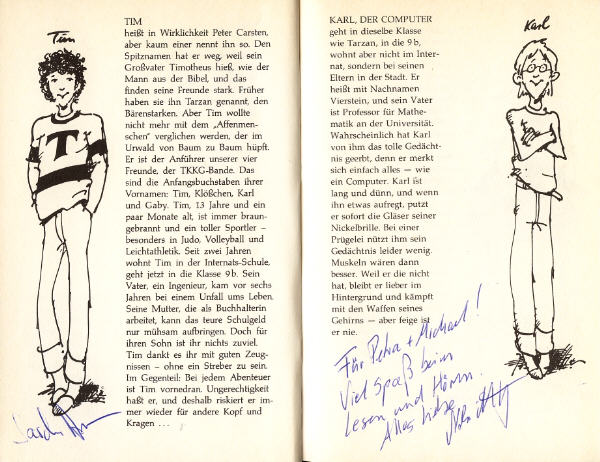 Tim
TIM
heißt in Wirklichkeit Peter Carsten,
aber kaum einer nennt ihn so. Den
Spitznamen hat er weg, weil sein
Großvater Timotheus hieß, wie der
Mann aus der Bibel, und das
finden seine Freunde stark. Früher
haben sie ihn Tarzan genannt, den
Bärenstarken. Aber Tim wollte
nicht mehr mit dem „Affenmen-
schen" verglichen werden, der im
Urwald von Baum zu Baum hüpft.
Er ist der Anführer unserer vier
Freunde, der TKKG-Bande. Das
sind die Anfangsbuchstaben ihrer
Vornamen: Tim, Klößchen, Karl
und Gaby. Tim, 13 Jahre und ein
paar Monate alt, ist immer braun-
gebrannt und ein toller Sportler –
besonders in Judo, Volleyball und
Leichtathletik. Seit zwei Jahren
wohnt Tim in der Internats-Schule,
geht jetzt in die Klasse 9 b. Sein
Vater, ein Ingenieur, kam vor sechs
Jahren bei einem Unfall ums Leben.
Seine Mutter, die als Buchhalterin
arbeitet, kann das teure Schulgeld
nur mühsam aufbringen. Doch für
ihren Sohn ist ihr nichts zuviel.
Tim dankt es ihr mit guten Zeug-
nissen – ohne ein Streber zu sein.
Im Gegenteil: Bei jedem Abenteuer
ist Tim vornedran. Ungerechtigkeit
haßt er, und deshalb riskiert er im-
mer wieder für andere Kopf und
Kragen ...
T
KARL, DER COMPUTER
geht in dieselbe Klasse
wie Tarzan, in die 9 b,
wohnt aber nicht im Inter-
nat, sondern bei seinen
Eltern in der Stadt. Er
heißt mit Nachnamen
Vierstein, und sein Vater
ist Professor für Mathe-
matik an der Universität.
Wahrscheinlich hat Karl
von ihm das tolle Gedächt-
nis geerbt, denn er merkt
sich einfach alles — wie
ein Computer. Karl ist
lang und dünn, und wenn
ihn etwas aufregt, putzt
er sofort die Gläser seiner
Nickelbrille. Bei einer
Prügelei nützt ihm sein
Gedächtnis leider wenig.
Muskeln wären dann
besser. Weil er die nicht
hat, bleibt er lieber im
Hintergrund und kämpft
mit den Waffen seines
Gehirns — aber feige ist
er nie.
Karl
Für Petra + Michael!
Viel Spaß beim
Lesen und Hören.
Alles Liebe